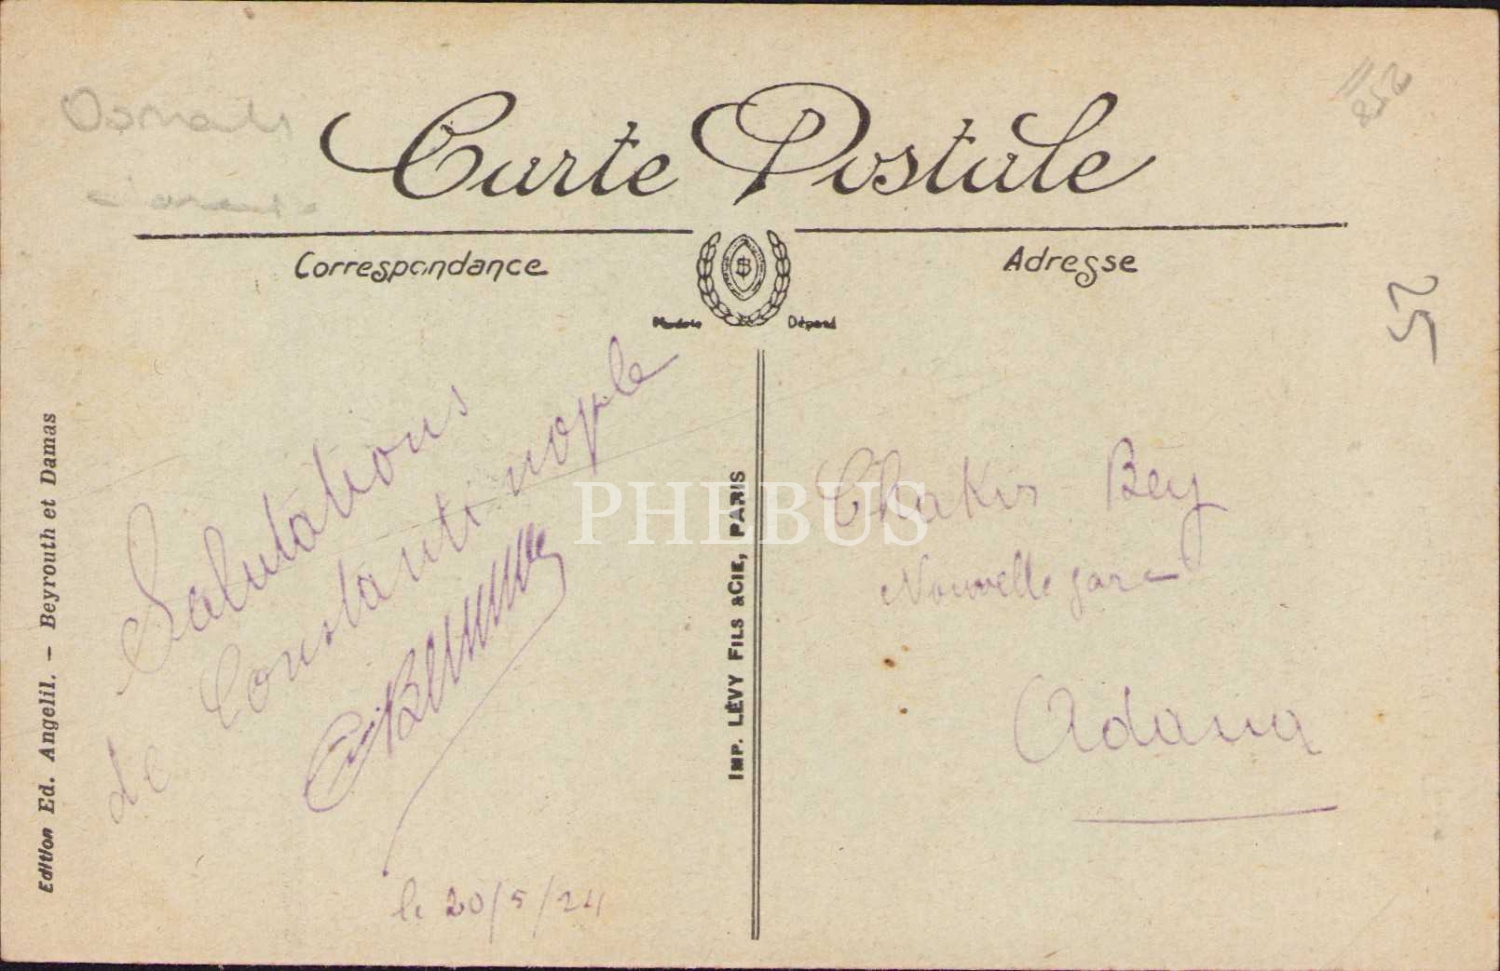 Carte Postale
Correspondance
Adresse
Modèle Déposé
Salutations
de Constantinople
le 20/5/24
Chakir Bey
Nouvelle gare
Adana
52
Edition Ed. Angelil. - Beyrouth et Damas
IMP. LÉVY FILS & CIE, PARIS
PHEBUS